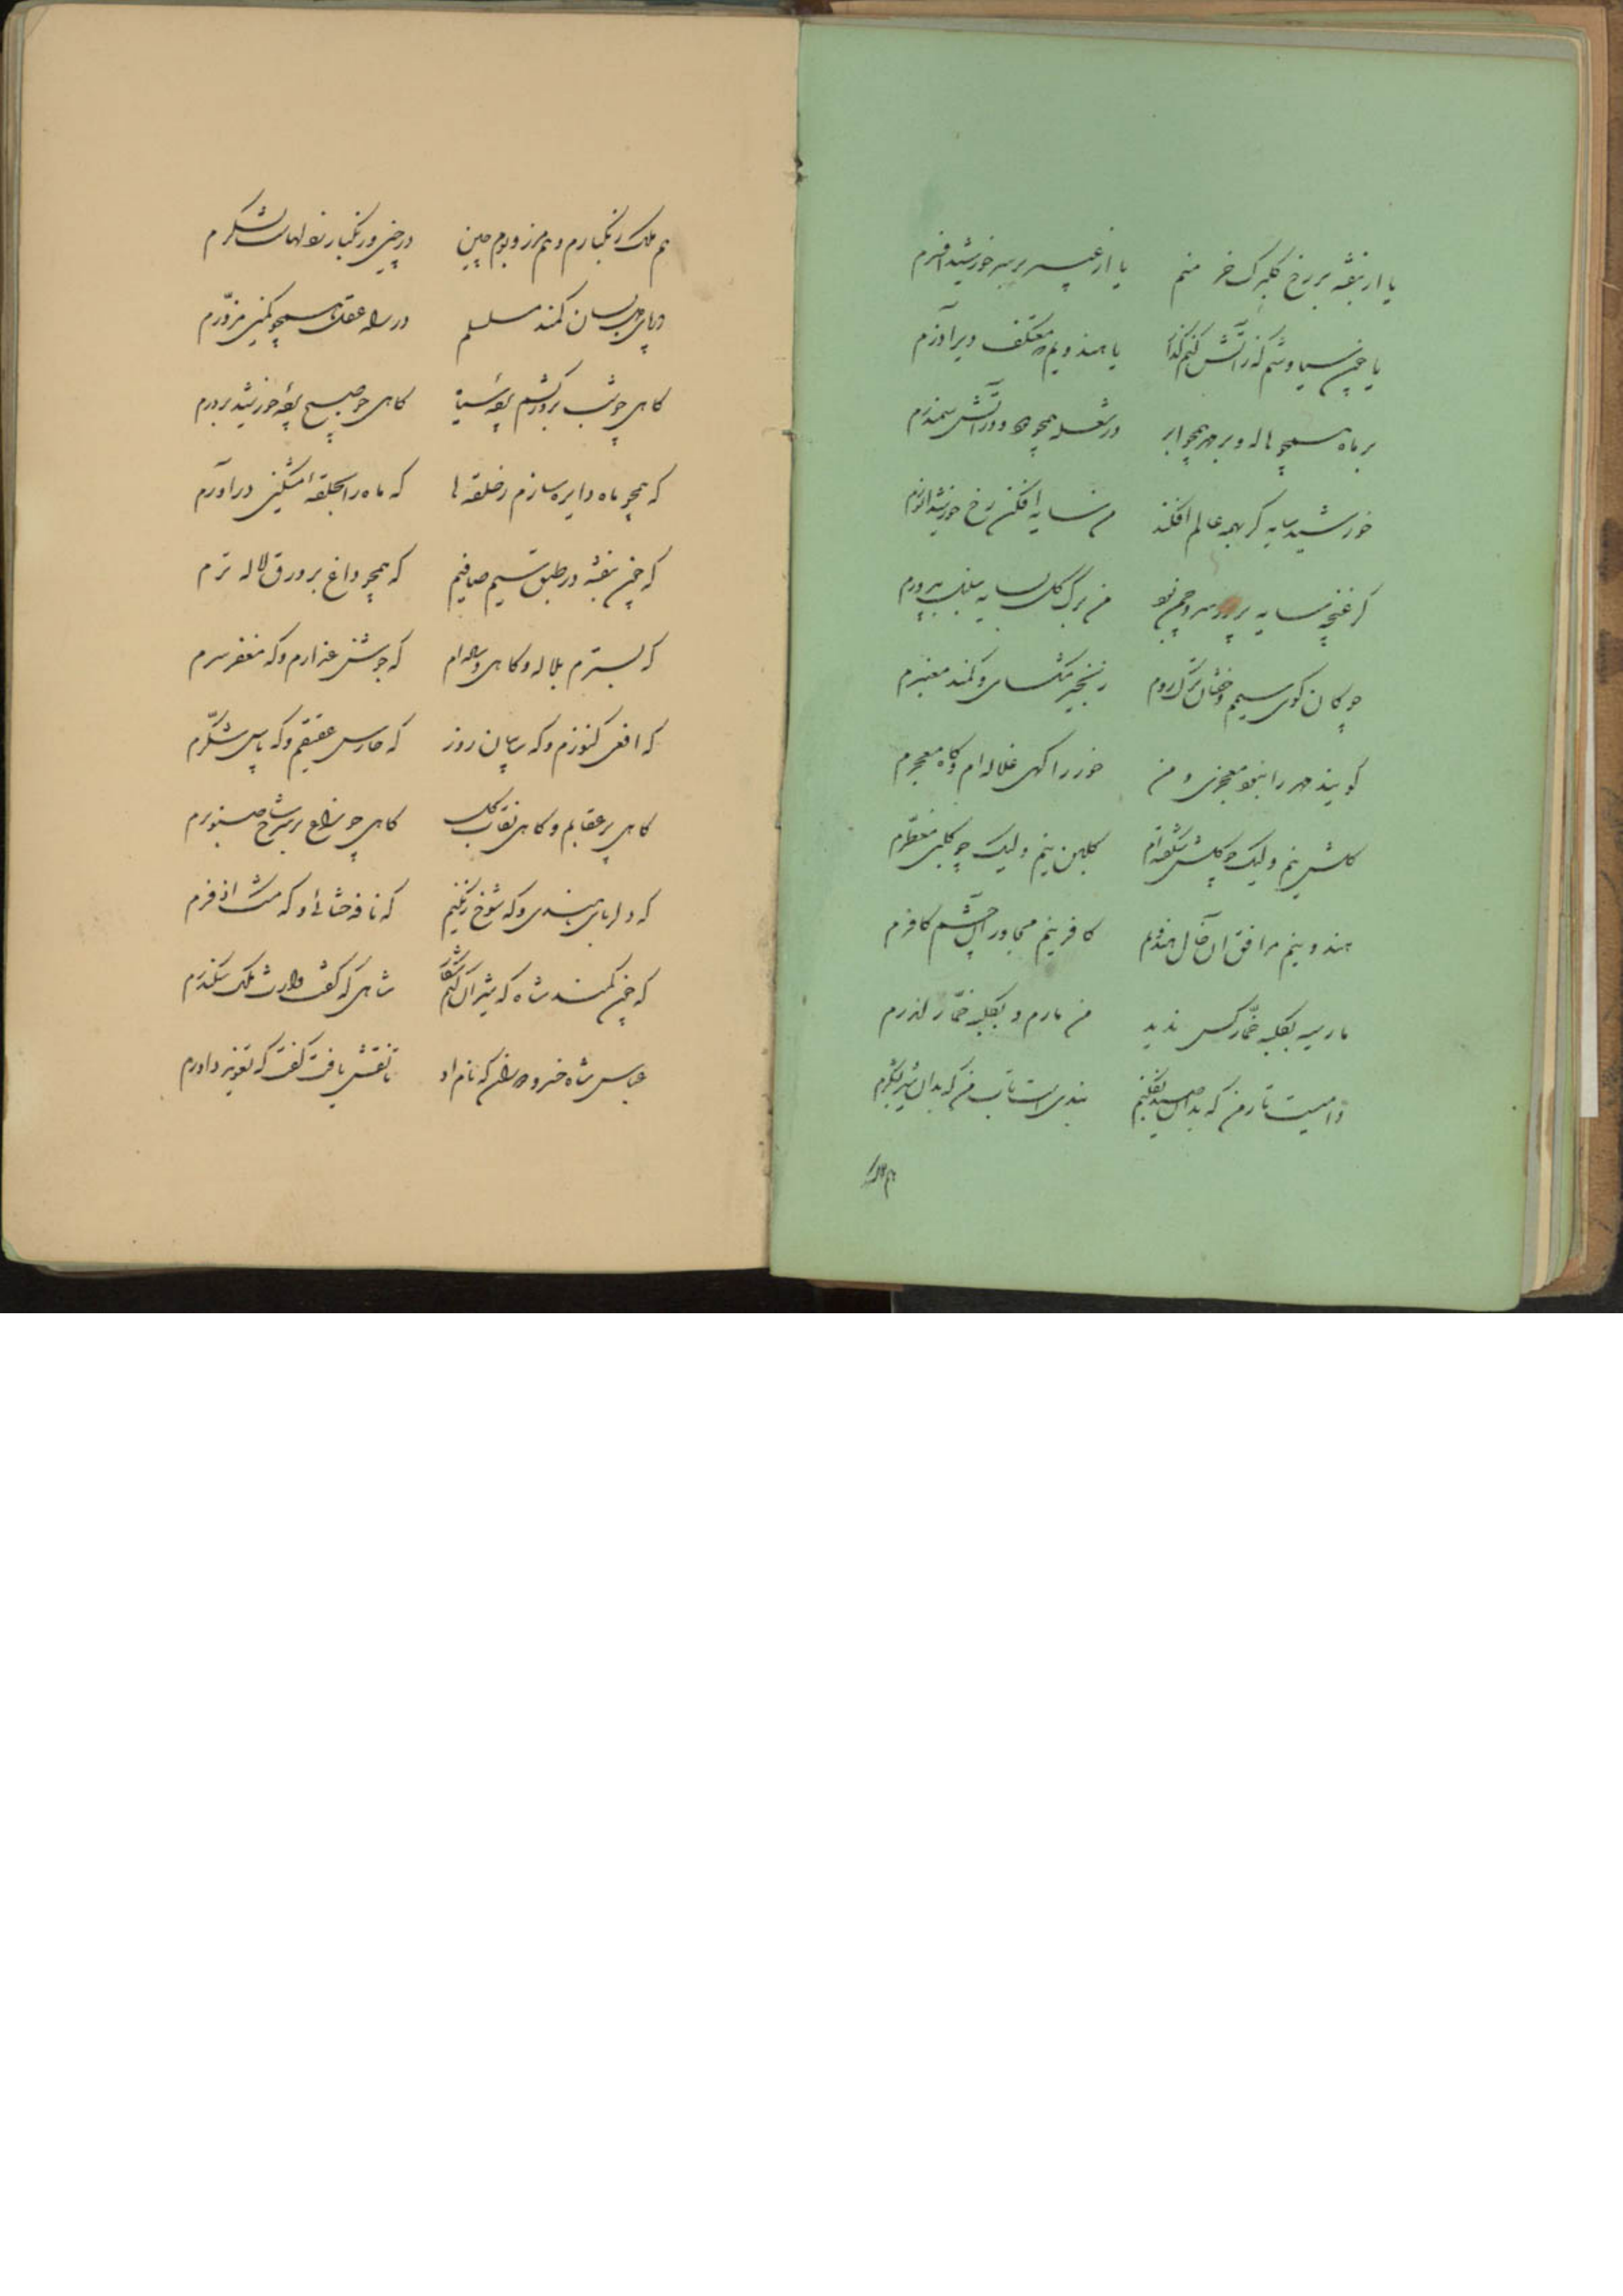 یا از بنفشه بر رخ گلبرگ خرمنم یا از عبیر بر سر خورشید افسرم
یا چون سیاوشم که در آتش کنم گذار یا هندویم که معتکف دیر آزرم
بر ماه همچو هاله و بر مهر همچو ابر در شعله همچو دود و در آتش سمندرم
خورشید سایه گر بهمه عالم افکند من سایه افکن رخ خورشید انورم
گر غنچه سایه پرور سرو چمن بود من برگ گل بسایه سنبل بپرورم
چوگان گوی سیمم و خفتان ترک روم زنجیر مشکسای و کمند معنبرم
گویند مهر را نبود معجری و من خور را گهی غلاله ام و گاه معجرم
گلشن نیم ولیک چو گلشن شکفته ام گلبن نیم ولیک چو گلبن معطرم
هندو نیم مرافق آن خال هندویم کافر نیم مجاور آن چشم کافرم
مار سیه بکلبه خمار کس ندید من مارم و بکلبه خمار اندرم
دامیست تار من که بدان صید بفکنم بندی است تاب من که بدان شیر بشکرم
هم ملک
هم ملک زنگبارم و هم مرز و بوم چین در چین و زنگبار لشکرم
در پای دل بسان کمند مسلسلم در راه عقل همچو کمین مزورم
گاهی چو شب بروز کشم پرده سیاه گاهی چو صبح پرده خورشید بردرم
که همچو ماه دایره سازم ز حلقه ها که ماه را بحلقه مشکین درآورم
که چون بنفشه در طبق سیم صافیم که همچو داغ بر ورق لاله ترم
که بسترم بلاله و گاهی وساده ام که جوشن عذارم و که مغفر سرم
که افعی کنوزم و که سایبان روز که حارس عقیقم و که پاس شکرم
گاهی پر عقابم و گاهی نقاب گل گاهی چو زاغ بر سر شاخ صنوبرم
که دلربای هندی و که شوخ زنگیم که نافه ختائی و که مشک اذفرم
که چون کمند شاه که شیران کنم شکار شاهی که گفت وارث ملک سکندرم
عباس شاه خسرو دوران که نام او تا نقش یافت گفت که تعویذ داورم